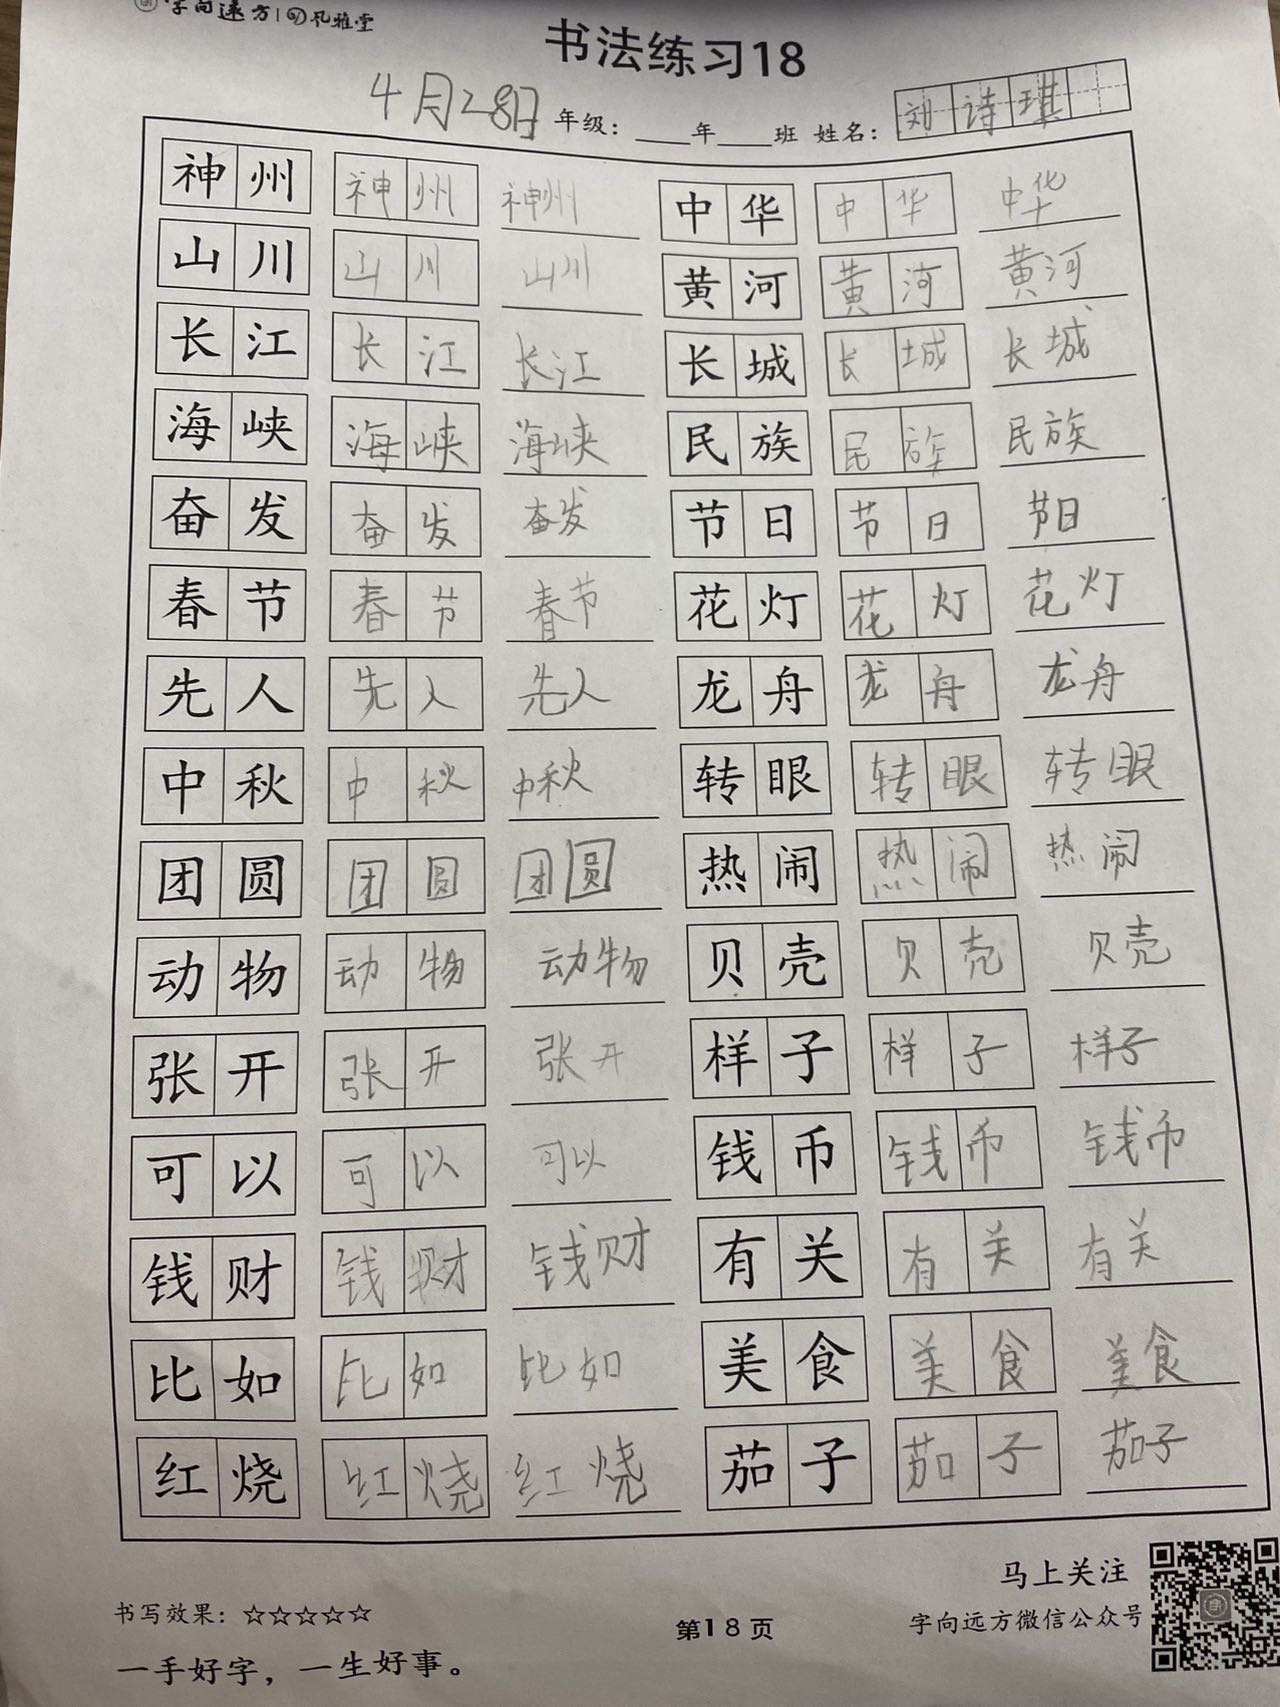 字向远方 | 孔雅堂
书法练习18
4月28日 年级：____年____班 姓名：刘诗琪
神州 神州 神州 中华 中华 中华
山川 山川 山川 黄河 黄河 黄河
长江 长江 长江 长城 长城 长城
海峡 海峡 海峡 民族 民族 民族
奋发 奋发 奋发 节日 节日 节日
春节 春节 春节 花灯 花灯 花灯
先人 先人 先人 龙舟 龙舟 龙舟
中秋 中秋 中秋 转眼 转眼 转眼
团圆 团圆 团圆 热闹 热闹 热闹
动物 动物 动物 贝壳 贝壳 贝壳
张开 张开 张开 样子 样子 样子
可以 可以 可以 钱币 钱币 钱币
钱财 钱财 钱财 有关 有关 有关
比如 比如 比如 美食 美食 美食
红烧 红烧 红烧 茄子 茄子 茄子
马上关注
书写效果：☆☆☆☆☆ 第18页 字向远方微信公众号
一手好字，一生好事。